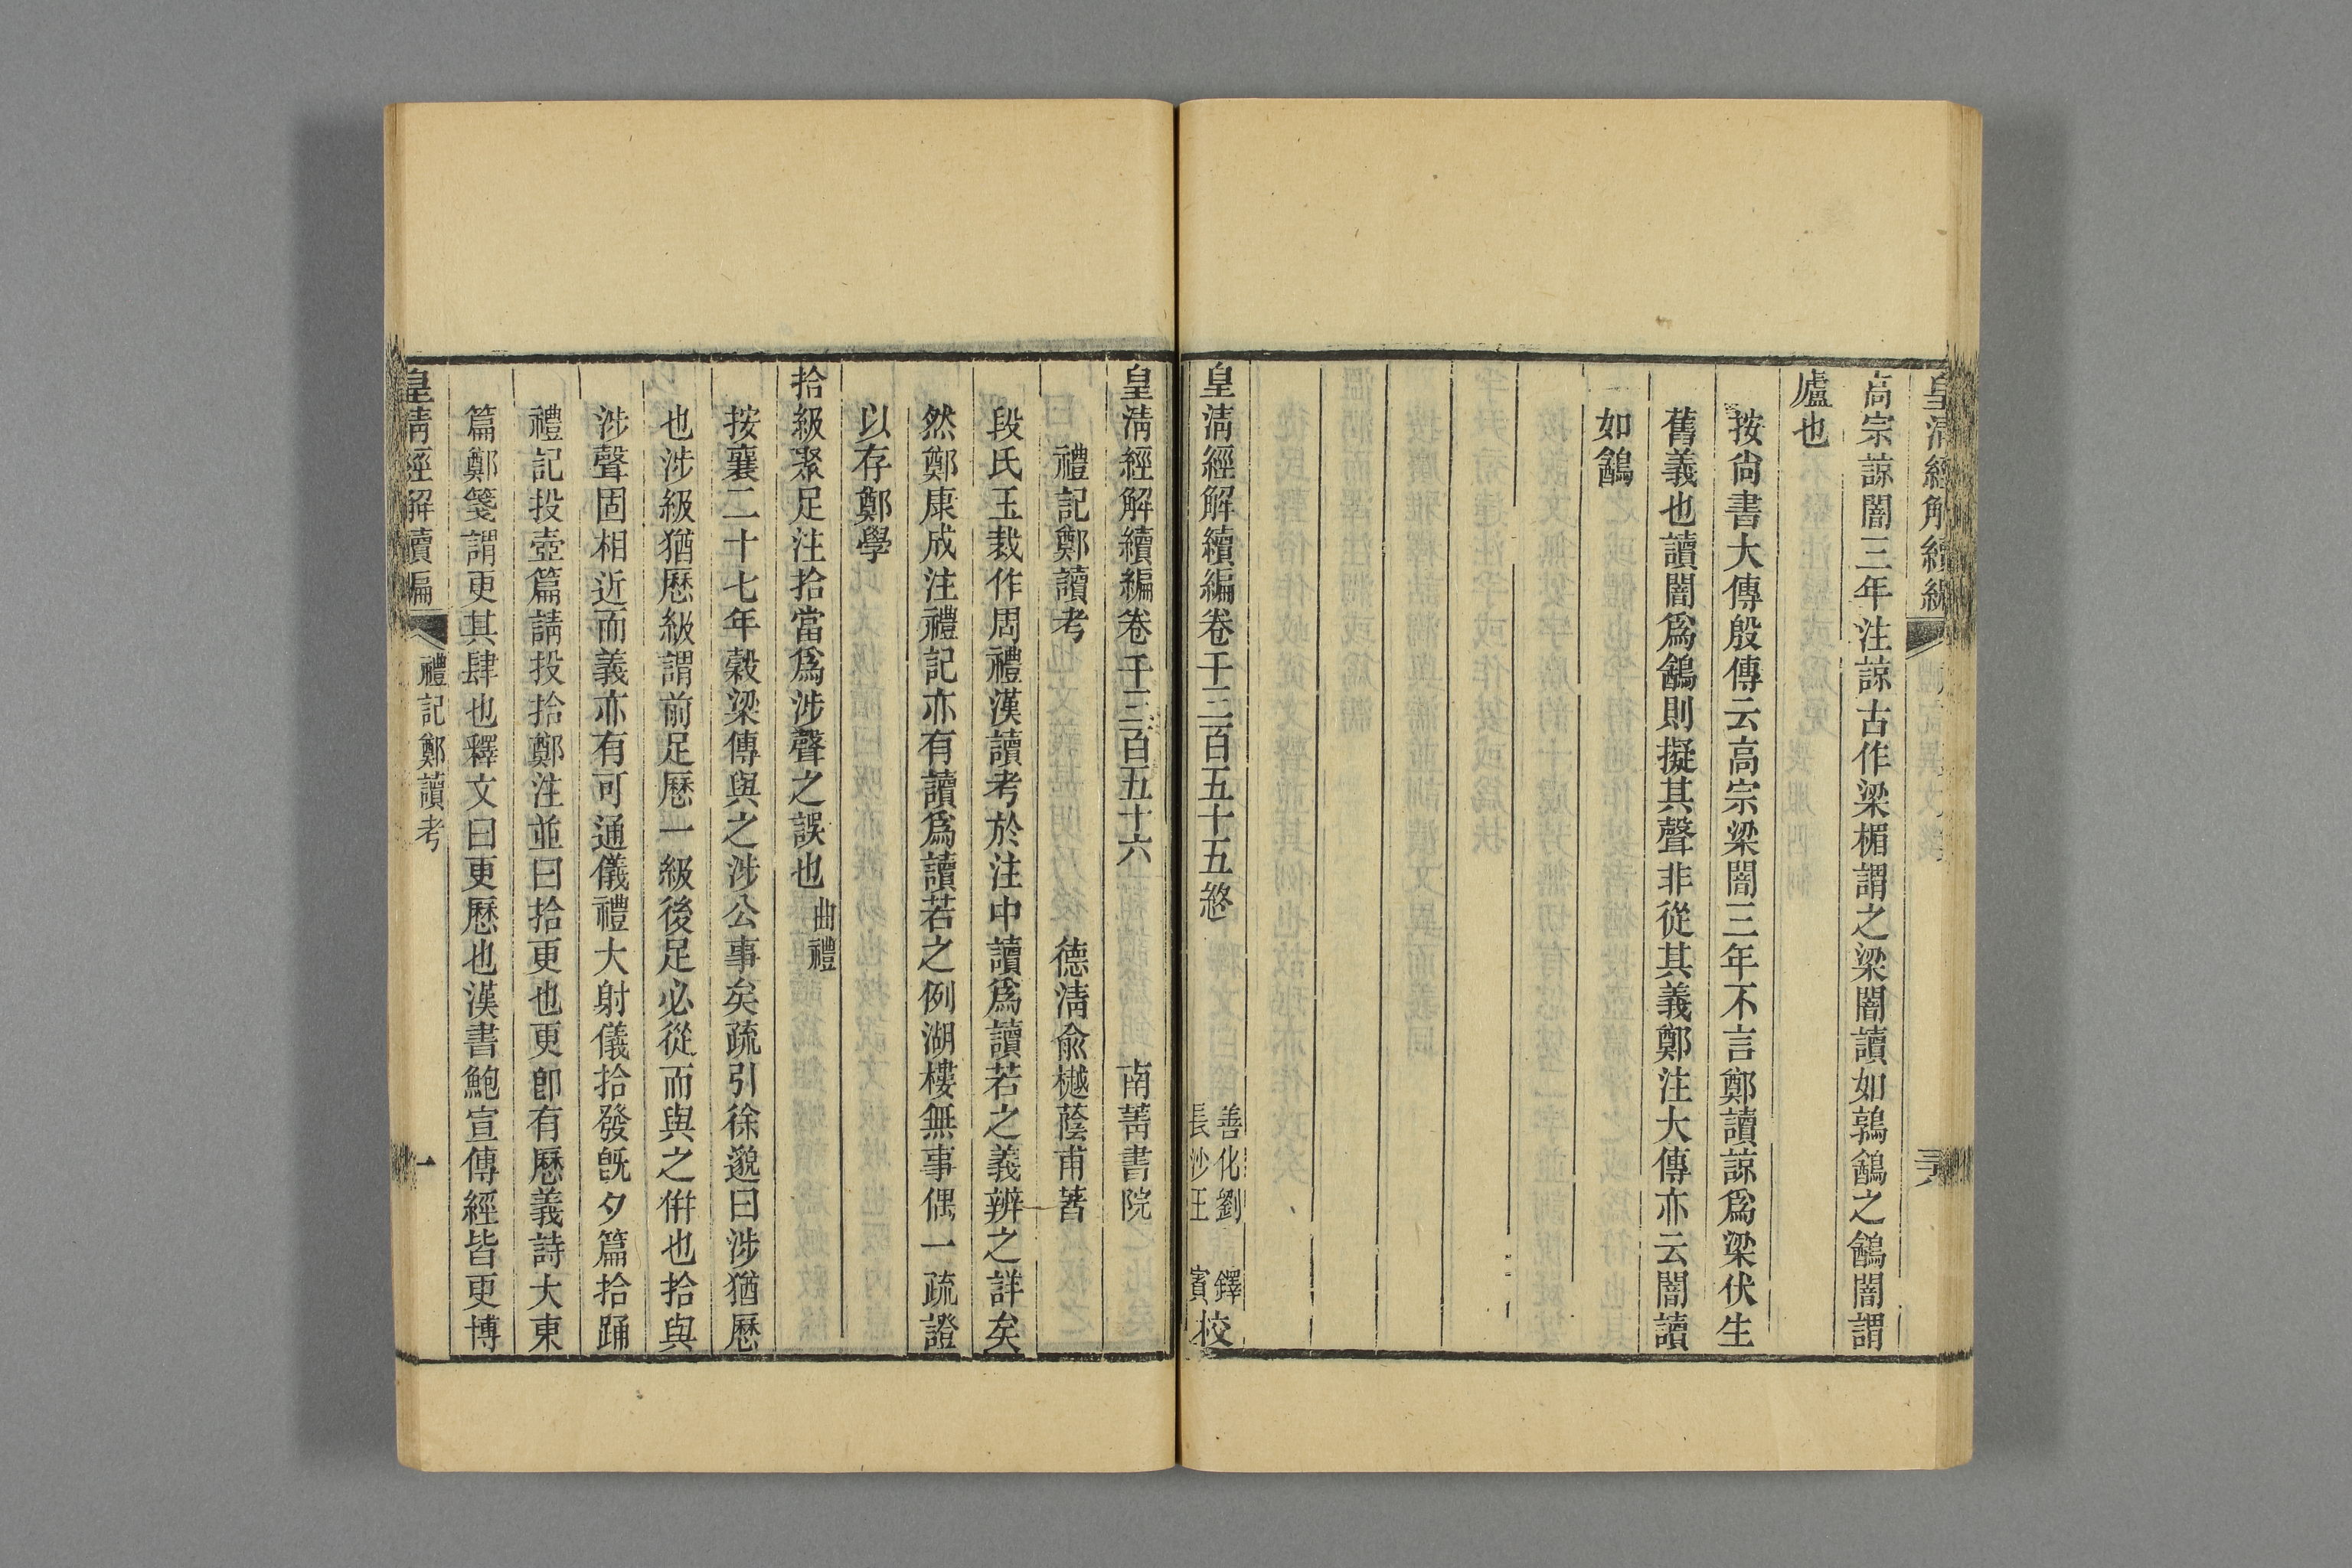 皇清經解續編
高宗諒闇三年注諒古作梁楣謂之梁闇讀如鶉鷂之鷂闇謂
廬也
按尙書大傳殷傳云高宗梁闇三年不言鄭讀諒爲梁伏生
舊義也讀闇爲鷂則擬其聲非從其義鄭注大傳亦云闇讀
如鷂
皇淸經解續編卷千三百五十五終
善化劉鐸
長沙王賓校
皇淸經解續編卷千三百五十六 南菁書院
禮記鄭讀考 德淸俞樾蔭甫著
段氏玉裁作周禮漢讀考於注中讀爲讀若之義辨之詳矣
然鄭康成注禮記亦有讀爲讀若之例湖樓無事偶一疏證
以存鄭學
拾級聚足注拾當爲涉聲之誤也 曲禮
按襄二十七年穀梁傳與之涉公事矣疏引徐邈曰涉猶歷
也涉級猶歷級謂前足歷一級後足必從而與之倂也拾與
涉聲固相近而義亦有可通儀禮大射儀拾發旣夕篇拾踊
禮記投壺篇請投拾鄭注並曰拾更也更卽有歷義詩大東
篇鄭箋謂更其肆也釋文曰更歷也漢書鮑宣傳經皆更博
皇淸經解續編 禮記鄭讀考 一